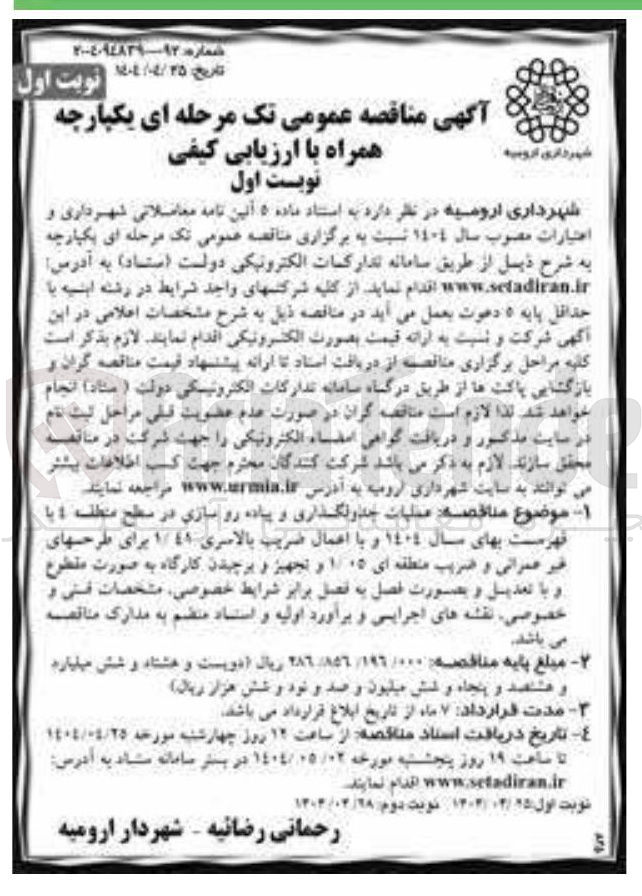 شماره: ۹۲-۲۰۰۴۰۹۴۸۳۹۰۰۰
تاریخ: ۱۴۰۴/۰۴/۲۵
نوبت اول
شهرداری ارومیه
آگهی مناقصه عمومی تک مرحله ای یکپارچه
همراه با ارزیابی کیفی
نوبت اول
شهرداری ارومیه در نظر دارد به استناد ماده ۵ آئین نامه معاملاتی شهرداری و
اعتبارات مصوب سال ۱۴۰۴ نسبت به برگزاری مناقصه عمومی تک مرحله ای یکپارچه
به شرح ذیل از طریق سامانه تدارکات الکترونیکی دولت (ستاد) به آدرس:
www.setadiran.ir اقدام نماید. از کلیه شرکتهای واجد شرایط در رشته ابنیه با
حداقل پایه ۵ دعوت بعمل می آید در مناقصه ذیل به شرح مشخصات اعلامی در این
آگهی شرکت و نسبت به ارائه قیمت بصورت الکترونیکی اقدام نمایند. لازم بذکر است
کلیه مراحل برگزاری مناقصه از دریافت اسناد تا ارائه پیشنهاد قیمت مناقصه گران و
بازگشایی پاکت ها از طریق درگاه سامانه تدارکات الکترونیکی دولت (ستاد) انجام
خواهد شد. لذا لازم است مناقصه گران در صورت عدم عضویت قبلی مراحل ثبت نام
در سایت مذکور و دریافت گواهی امضاء الکترونیکی را جهت شرکت در مناقصه
محقق سازند. لازم به ذکر می باشد شرکت کنندگان محترم جهت کسب اطلاعات بیشتر
می توانند به سایت شهرداری ارومیه به آدرس www.urmia.ir مراجعه نمایند.
۱- موضوع مناقصه: عملیات جدولگذاری و پیاده رو سازی در سطح منطقه ۴ با
فهرست بهای سال ۱۴۰۴ و با اعمال ضریب بالاسری ۱/۴۱ برای طرحهای
غیر عمرانی و ضریب منطقه ای ۱/۰۵ و تجهیز و برچیدن کارگاه به صورت مقطوع
و با تعدیل و بصورت فصل به فصل برابر شرایط خصوصی، مشخصات فنی و
خصوصی، نقشه های اجرایی و برآورد اولیه و اسناد منضم به مدارک مناقصه
می باشد.
۲- مبلغ پایه مناقصه: ۲۸۶/۸۵۶/۱۹۶/۰۰۰ ریال (دویست و هشتاد و شش میلیارد
و هشتصد و پنجاه و شش میلیون و صد و نود و شش هزار ریال)
۳- مدت قرارداد: ۷ ماه از تاریخ ابلاغ قرارداد می باشد.
۴- تاریخ دریافت اسناد مناقصه: از ساعت ۱۲ روز چهارشنبه مورخه ۱۴۰۴/۰۴/۲۵
تا ساعت ۱۹ روز پنجشنبه مورخه ۱۴۰۴/۰۵/۰۲ در بستر سامانه ستاد به آدرس:
www.setadiran.ir اقدام نمایند.
نوبت اول: ۱۴۰۴/۰۴/۲۵ نوبت دوم: ۱۴۰۴/۰۴/۲۸
رحمانی رضائیه - شهردار ارومیه